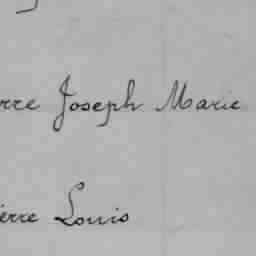 rre Joseph Marie
ierre Louis